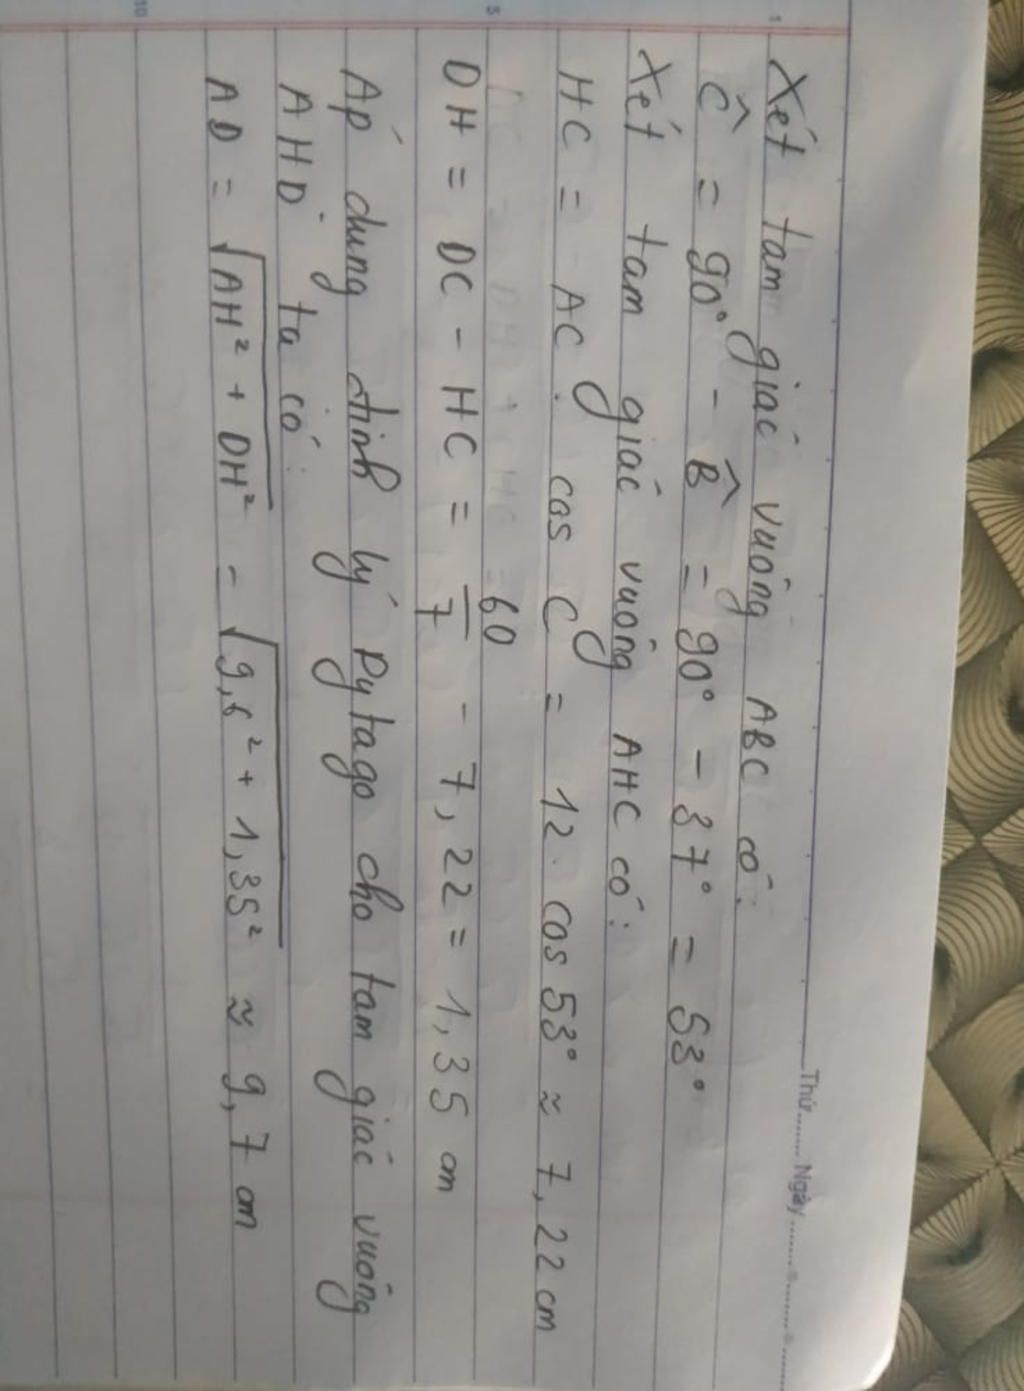 Thứ........ Ngày...............
1
Xét tam giác vuông ABC có:
Ĉ = 90° - B̂ = 90° - 37° = 53°
Xét tam giác vuông AHC có:
HC = AC . cos C = 12 . cos 53° ≈ 7,22 cm
5
DH = DC - HC = 60/7 - 7,22 = 1,35 cm
Áp dụng định lý Pytago cho tam giác vuông
AHD ta có:
AD = √AH² + DH² = √9,6² + 1,35² ≈ 9,7 cm
10